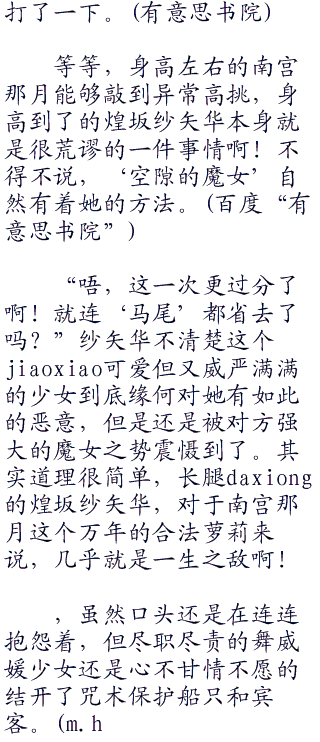 打了一下。(有意思书院)
等等，身高左右的南宫
那月能够敲到异常高挑，身
高到了的煌坂纱矢华本身就
是很荒谬的一件事情啊！不
得不说，‘空隙的魔女’自
然有着她的方法。(百度“有
意思书院”)
“唔，这一次更过分了
啊！就连‘马尾’都省去了
吗？”纱矢华不清楚这个
jiaoxiao可爱但又威严满满
的少女到底缘何对她有如此
的恶意，但是还是被对方强
大的魔女之势震慑到了。其
实道理很简单，长腿daxiong
的煌坂纱矢华，对于南宫那
月这个万年的合法萝莉来
说，几乎就是一生之敌啊！
，虽然口头还是在连连
抱怨着，但尽职尽责的舞威
媛少女还是心不甘情不愿的
结开了咒术保护船只和宾
客。(m.h